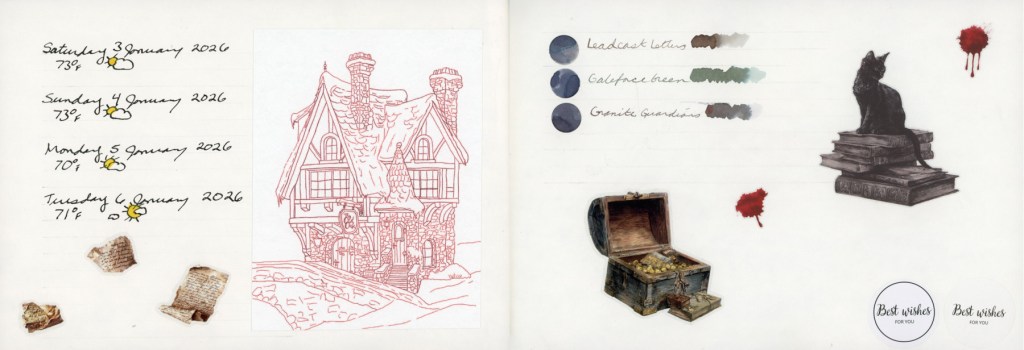 Saturday 3 January 2026
73°F
Sunday 4 January 2026
73°F
Monday 5 January 2026
70°F
Tuesday 6 January 2026
71°F
Leadcast Letters
Galeforce Green
Granite Guardians
Best wishes
FOR YOU
Best wishes
FOR YOU